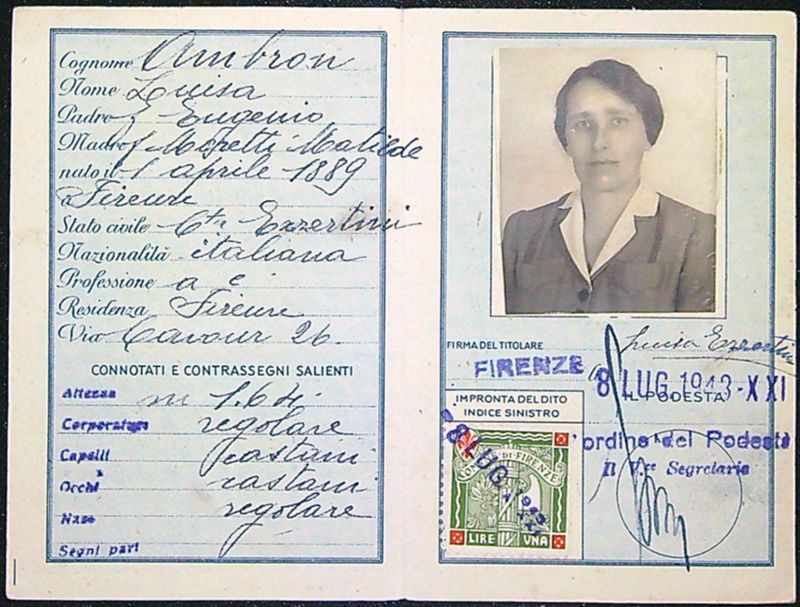 Cognome Ambron
Nome Luisa
Padre f Eugenio
Madre f Moretti Matilde
nato il 1 aprile 1889
a Firenze
Stato civile Ezzertini
Nazionalità italiana
Professione a c
Residenza Firenze
Via Cavour 26.
CONNOTATI E CONTRASSEGNI SALIENTI
Altezza m 1.64
Corporatura regolare
Capelli castani
Occhi castani
Naso regolare
Segni part
FIRMA DEL TITOLARE
Luisa Ezzertini
FIRENZE 8 LUG 1943-XXI
IL PODESTÀ
IMPRONTA DEL DITO
INDICE SINISTRO
ordine del Podestà
Il V.re Segretario
-8 LUG 1943
COMUNE DI FIRENZE
LIRE VNA